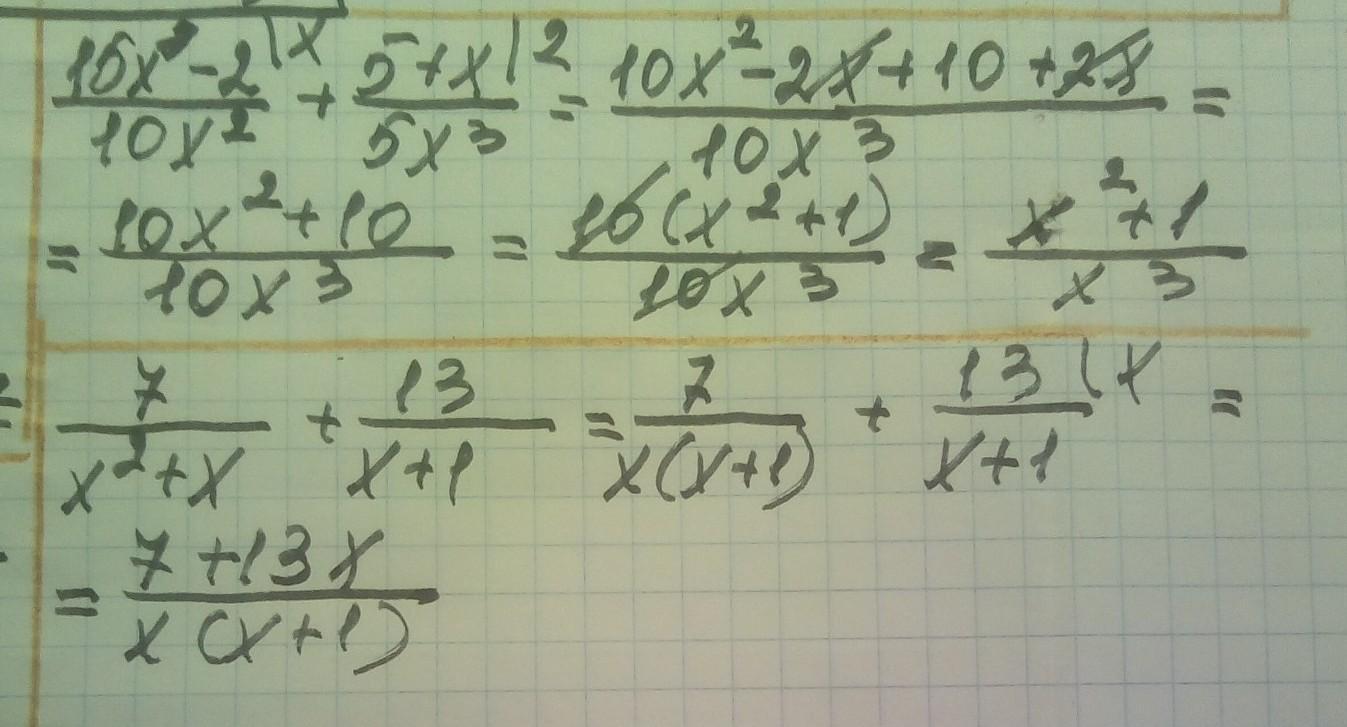 (10x - 2)/(10x²) \x + (5 + x)/(5x³) |2 = (10x² - 2x + 10 + 2x)/(10x³) =
= (10x² + 10)/(10x³) = (10(x² + 1))/(10x³) = (x² + 1)/(x³)
7/(x² + x) + 13/(x + 1) = 7/(x(x + 1)) + 13/(x + 1) \x =
= (7 + 13x)/(x(x + 1))